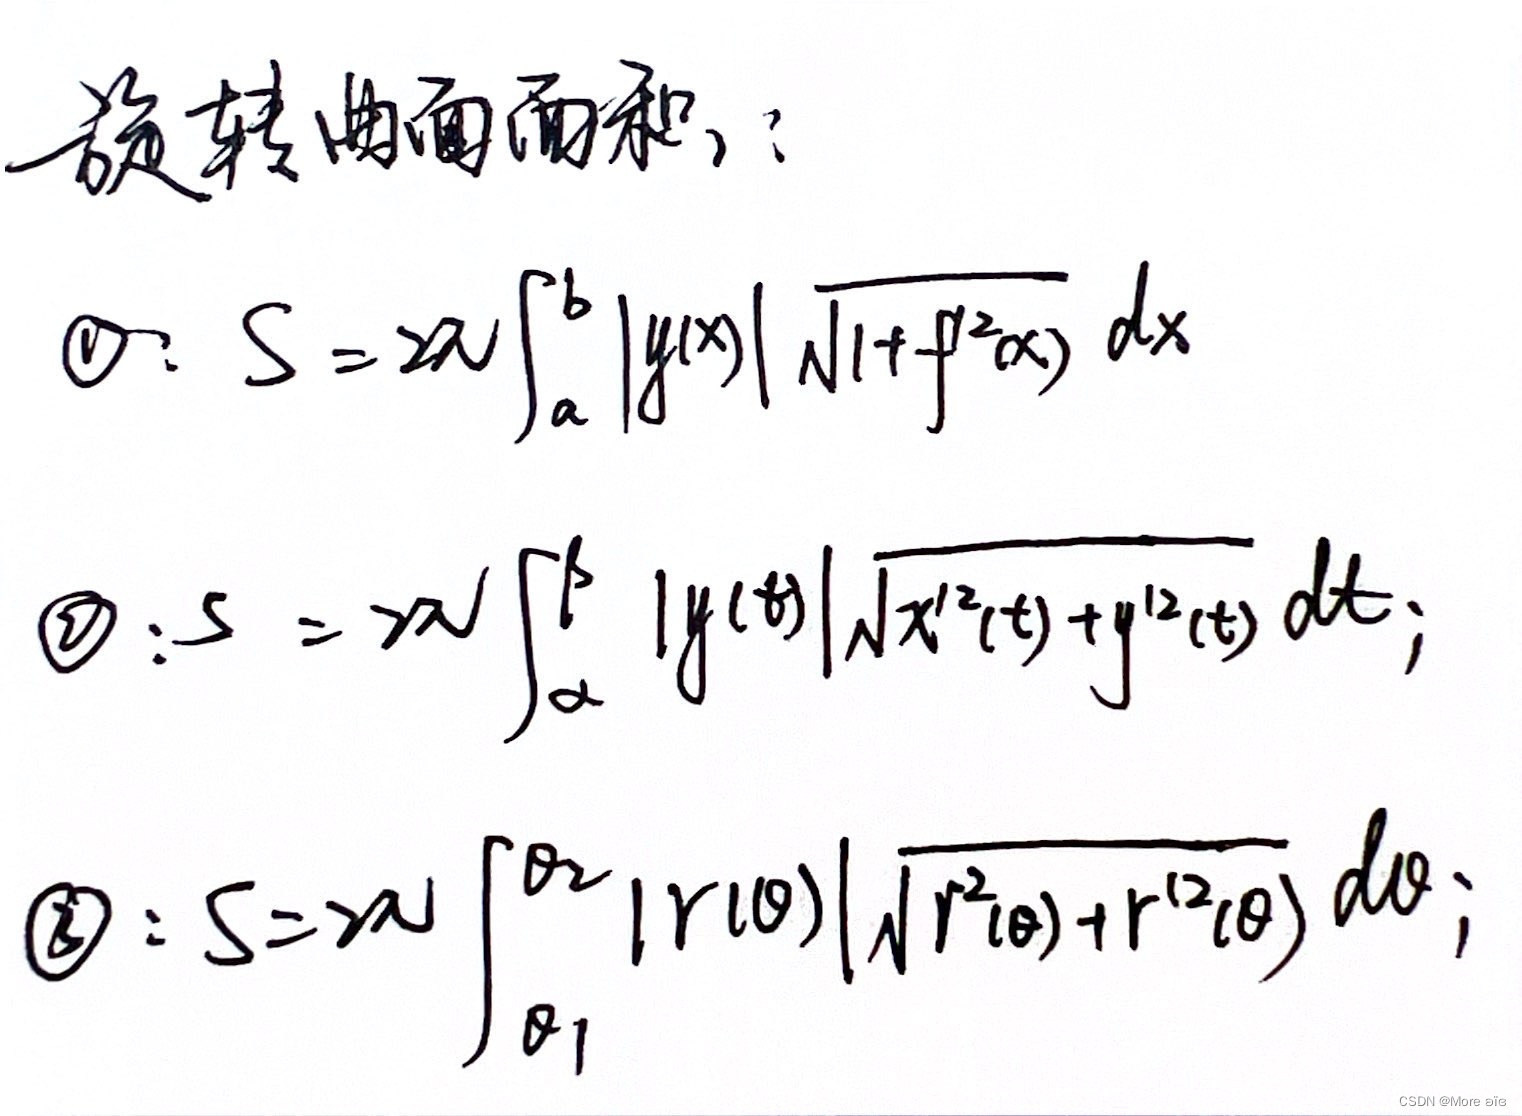 旋转曲面面积:
①: S = 2π∫_a^b |y(x)| √(1+f'²(x)) dx
②: S = 2π∫_α^β |y(t)| √(x'²(t)+y'²(t)) dt;
③: S = 2π∫_θ1^θ2 |r(θ)| √(r²(θ)+r'²(θ)) dθ;
CSDN @More